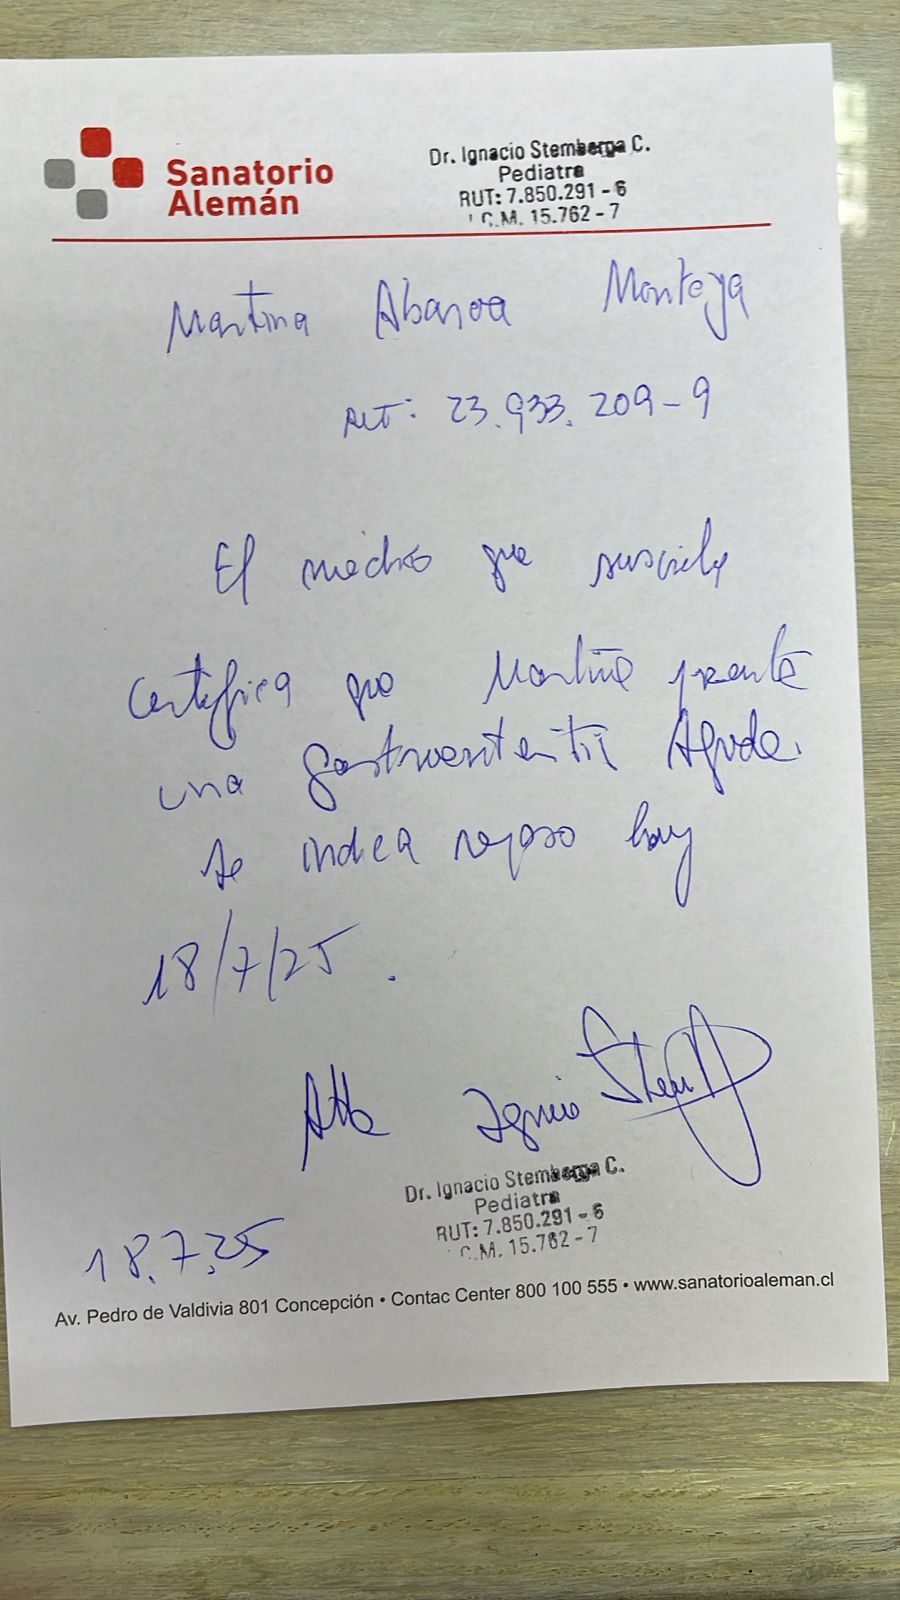 Sanatorio
Alemán
Dr. Ignacio Stemberga C.
Pediatra
RUT: 7.850.291 - 6
I.C.M. 15.762 - 7
Martina Abaroa Montoya
RUT: 23.933.209-9
El médico que suscribe
certifica que Martina presenta
una gastroenteritis Aguda.
Se indica reposo hoy
18/7/25.
Atte Ignacio
Dr. Ignacio Stemberga C.
Pediatra
RUT: 7.850.291 - 6
C.M. 15.762 - 7
18.7.25
Av. Pedro de Valdivia 801 Concepción • Contac Center 800 100 555 • www.sanatorioaleman.cl